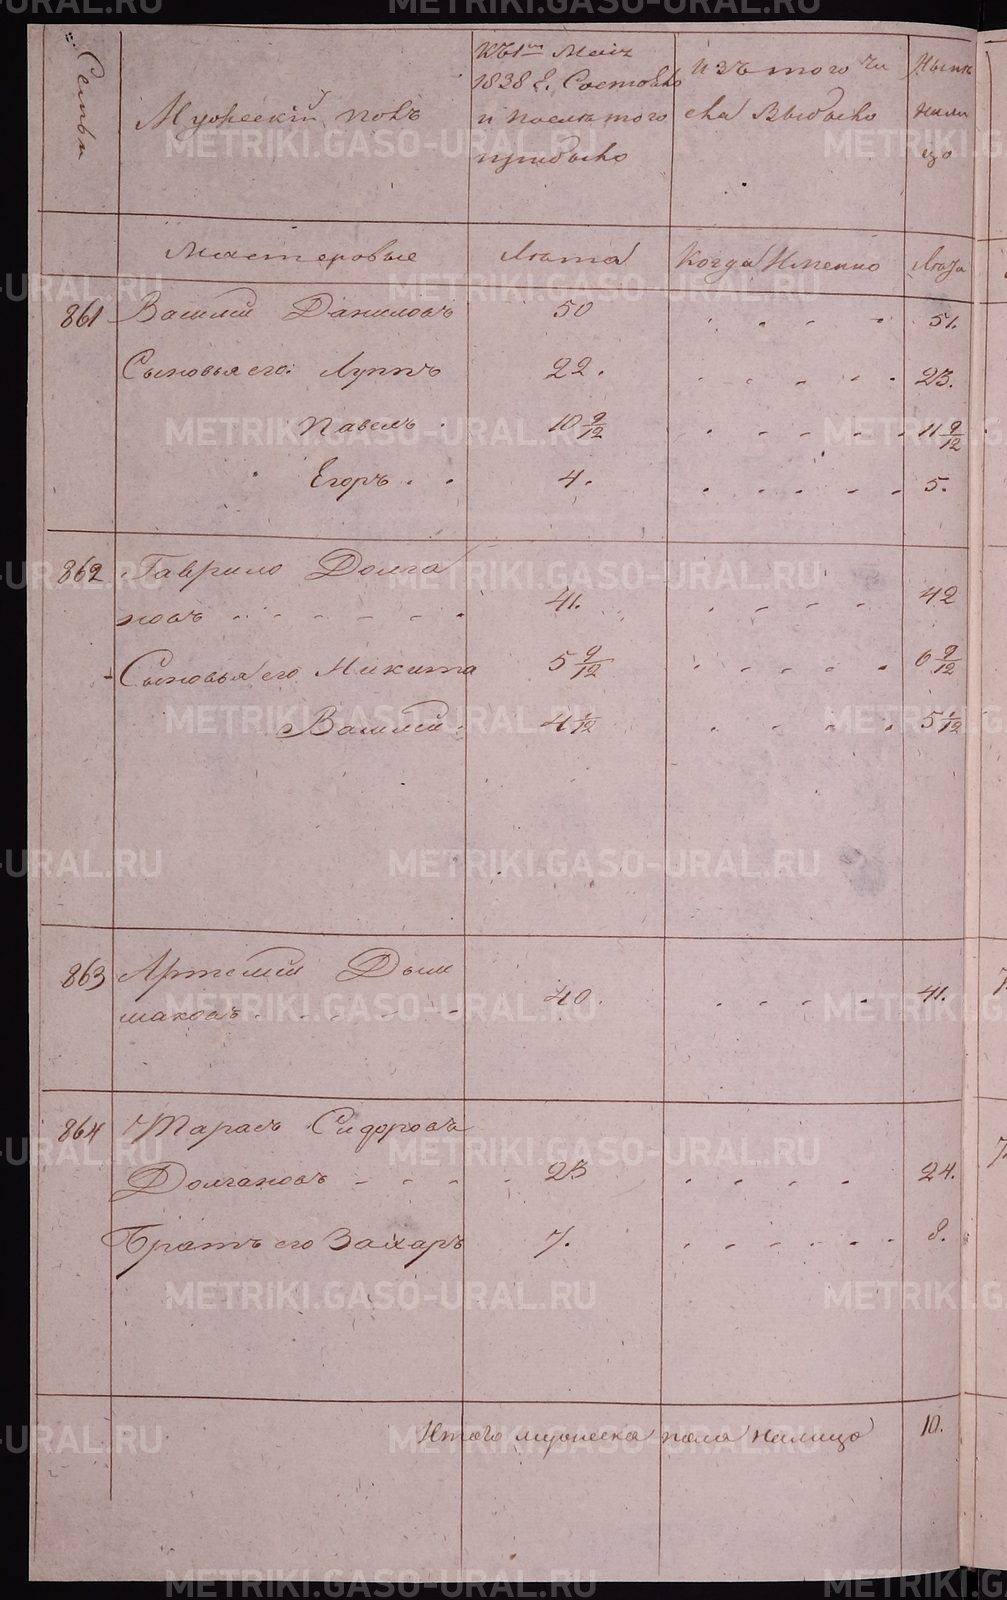 Семьи
Мужескій полъ
Къ 1му Маія
1838 г. Состояло
и послѣ того
прибыло
Изъ того чи
сла выбыло
Нынѣ
нали
цо
Мастеровые
Лѣта
Когда Именно
Лѣта
861 Василій Даниловъ 50 51.
Сыновья его: Луппъ 22. 23.
Павелъ 10 9/12 11 9/12
Егоръ 4. 5.
862 Гаврило Долга
новъ 41. 42
Сыновья его Никита 5 9/12 6 9/12
Василій 4 1/12 5 1/12
863 Артемій Дым
шаковъ 40. 41.
864 Тарасъ Сидоровъ
Долгановъ 23 24.
Братъ его Захаръ 7. 8.
Итого мужеска пола налицо 10.
METRIKI.GASO-URAL.RU